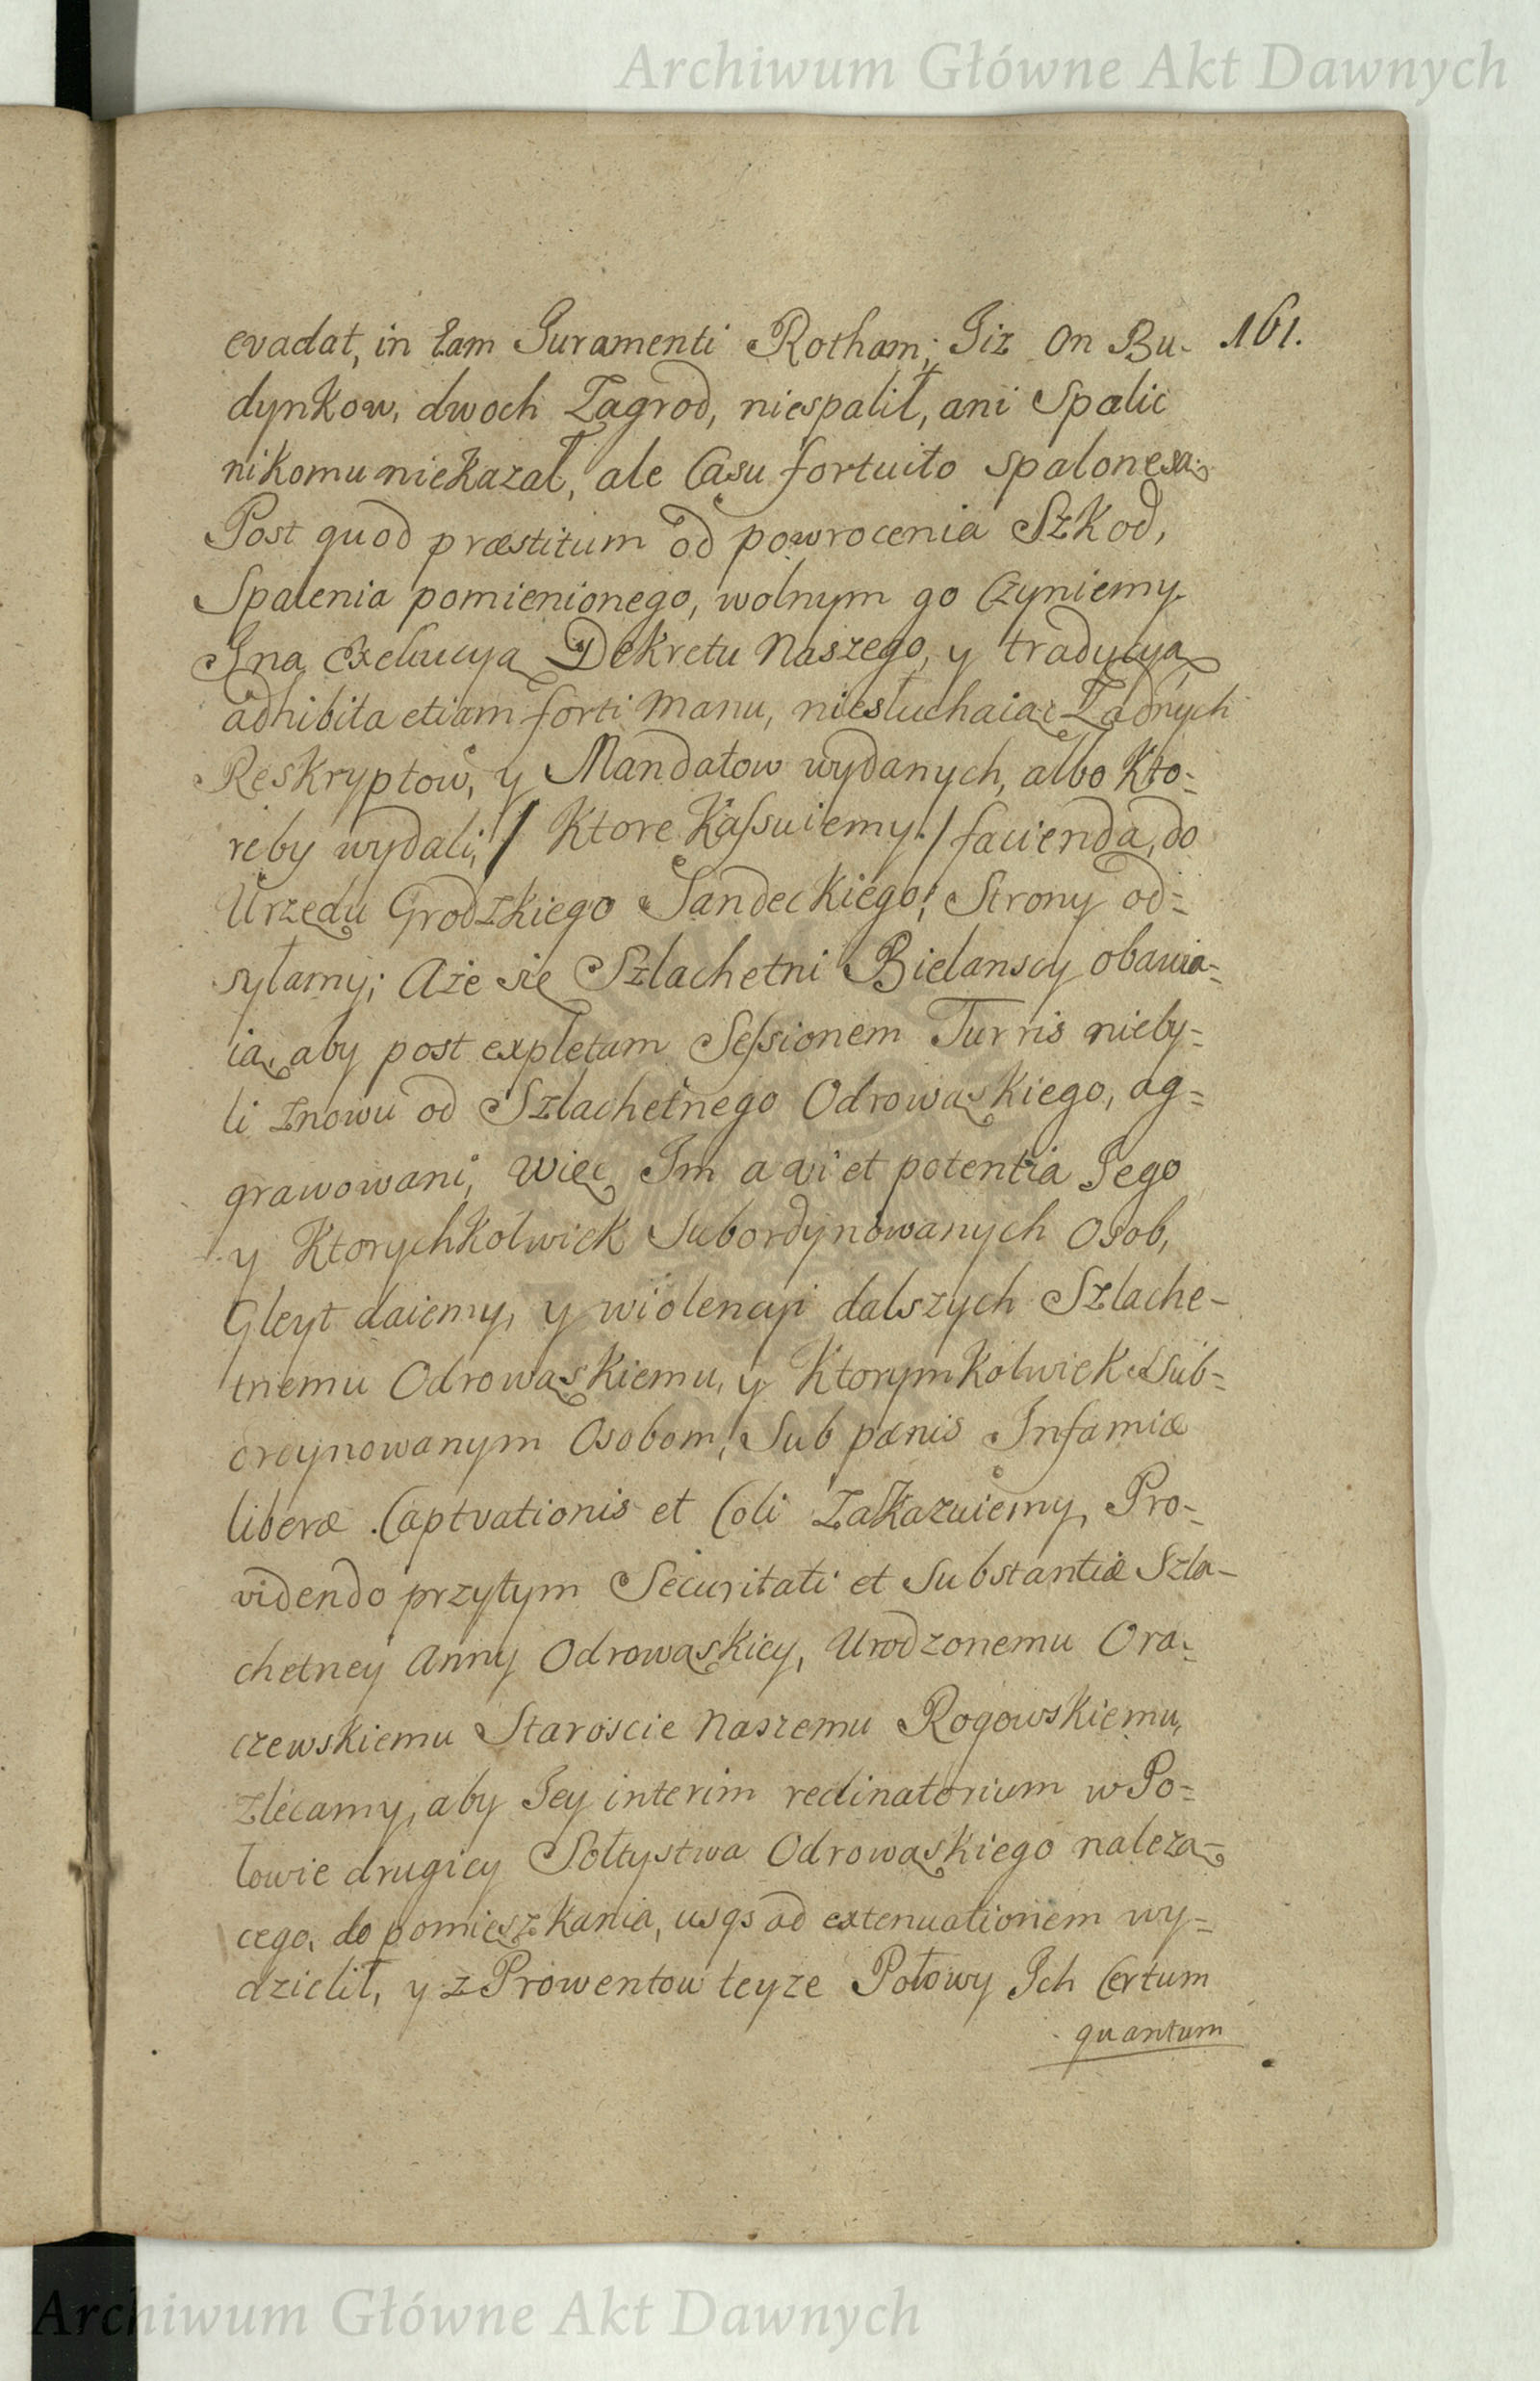 Archiwum Główne Akt Dawnych
161.
evadat, in tam Juramenti Rotham; Jiz On Bu-
dynkow, dwoch Zagrod, niespalił, ani Spalic
nikomu niekazał, ale Casu fortuito spalone są.
Post quod præstitum od powrocenia Szkod,
Spalenia pomienionego, wolnym go Czyniemy.
J na Exekucyą Dekretu Naszego, y tradycyą,
adhibita etiam forti manu, niesłuchaiąc Zadnych
Reskryptow, y Mandatow wydanych, albo kto=
reby wydali, / Ktore Kassuiemy. / facienda, do
Urzędu Grodzkiego Sandeckiego, Strony od=
syłamy; Aże się Szlachetni Bielanscy obawia=
ią, aby post expletam Sessionem Turris nieby=
li znowu od Szlachetnego Odrowąskiego, ag=
grawowani, Więc Im a vi et potentia Jego
y Ktorychkolwiek Subordynowanych Osob,
Gleyt daiemy, y wiolencyi dalszych Szlache-
tnemu Odrowąskiemu, y Ktorymkolwiek Sub=
ordynowanym Osobom, Sub pænis Infamiæ
liberæ Captvationis et Coli Zakazuiemy, Pro=
videndo przytym Securitati et Substantiæ Szla-
chetney Anny Odrowąskiey, Urodzonemu Ora=
czewskiemu Staroscie Naszemu Rogowskiemu,
Zlecamy, aby Jey interim reclinatorium w Po=
łowie drugiey Sołtystwa Odrowąskiego nalezą=
cego, do pomieszkania, usqs ad extenuationem wy=
dzielił, y z Prowentow teyze Połowy Ich Certum
quantum
Archiwum Główne Akt Dawnych